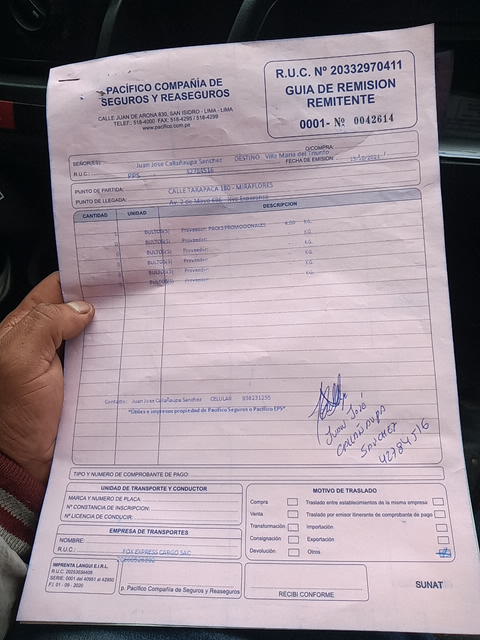 PACÍFICO COMPAÑÍA DE
SEGUROS Y REASEGUROS
CALLE JUAN DE ARONA 830, SAN ISIDRO - LIMA - LIMA
TELEF.: 518-4000 FAX: 518-4295 / 518-4299
www.pacifico.com.pe
R.U.C. Nº 20332970411
GUIA DE REMISION
REMITENTE
0001- Nº 0042614
SEÑOR(ES): Juan Jose Callañaupa Sanchez DESTINO Villa Maria del Triunfo
O/COMPRA:
R.U.C.: 42784516
FECHA DE EMISION:
PPS
PUNTO DE PARTIDA: CALLE TARAPACA 180 - MIRAFLORES
PUNTO DE LLEGADA: Av. 2 de Mayo 696
CANTIDAD UNIDAD DESCRIPCION
BULTO(S) Proveedor: PACKS PROMOCIONALES KG.
BULTO(S) Proveedor: KG.
BULTO(S) Proveedor: KG.
BULTO(S) Proveedor: KG.
BULTO(S) Proveedor: KG.
BULTO(S) Proveedor:
Contacto: Juan Jose Callañaupa Sanchez CELULAR 938231255
*Útiles e impresos propiedad de Pacifico Seguros o Pacifico EPS*
JUAN JOSÉ
CALLAÑAUPA
SANCHEZ
42784516
TIPO Y NUMERO DE COMPROBANTE DE PAGO:
UNIDAD DE TRANSPORTE Y CONDUCTOR
MARCA Y NUMERO DE PLACA:
Nº CONSTANCIA DE INSCRIPCION:
Nº LICENCIA DE CONDUCIR:
EMPRESA DE TRANSPORTES
NOMBRE:
R.U.C.: FOX EXPRESS CARGO SAC
MOTIVO DE TRASLADO
Compra
Venta
Transformación
Consignación
Devolución
Traslado entre establecimientos de la misma empresa
Traslado por emisor itinerante de comprobante de pago
Importación
Exportación
Otros
IMPRENTA LANGUI E.I.R.L.
SERIE: 0001 del 40951 al 42950
F.I. 01 - 09 - 2020
p. Pacífico Compañía de Seguros y Reaseguros
RECIBI CONFORME
SUNAT